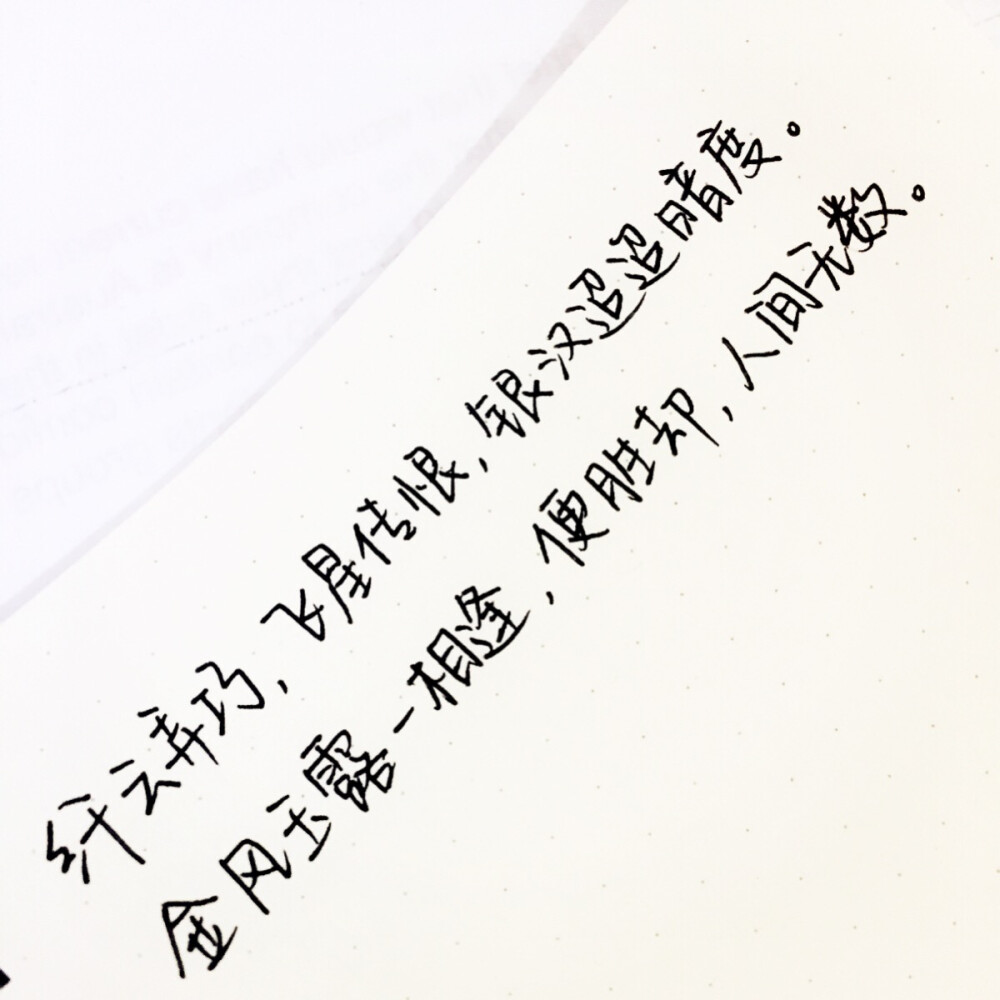 纤云弄巧，飞星传恨，银汉迢迢暗度。
金风玉露一相逢，便胜却，人间无数。